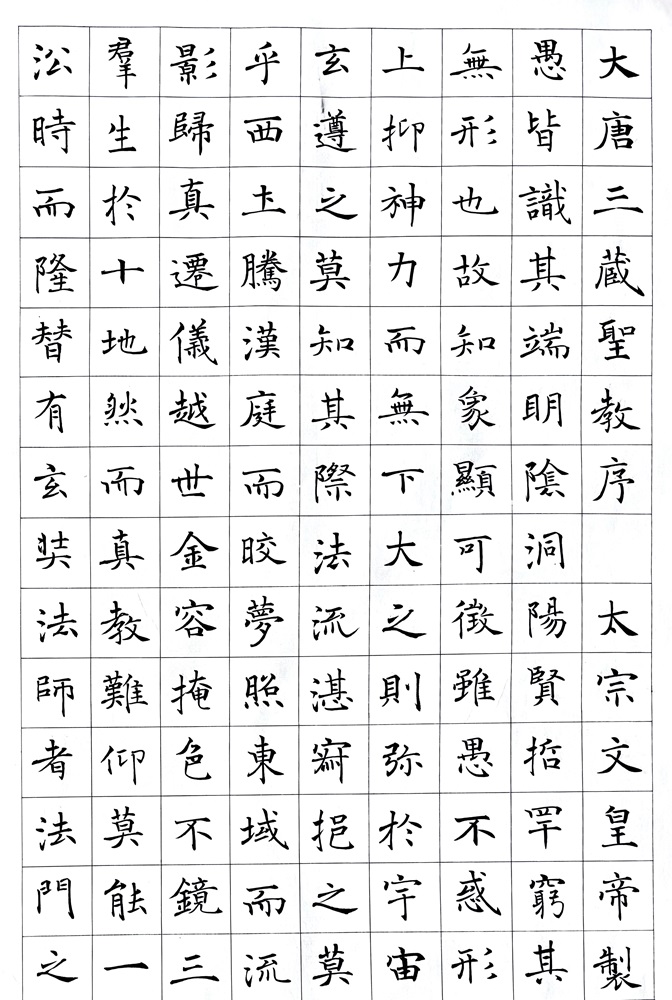 大唐三蔵聖教序 太宗文皇帝製
愚皆識其端明陰洞陽賢哲罕窮其
無形也故知象顯可徵雖愚不惑形
上抑神力而無下大之則弥於宇宙
玄遵之莫知其際法流湛寂挹之莫
乎西土騰漢庭而皎夢照東域而流
影歸真遷儀越世金容掩色不鏡三
羣生於十地然而真教難仰莫能一
訟時而隆替有玄奘法師者法門之